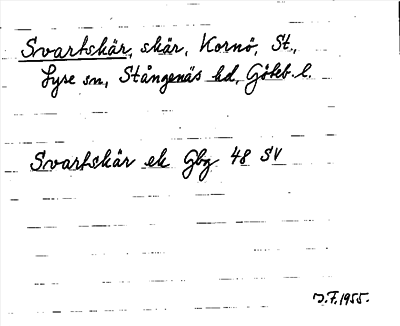 Svartskär, skär, Kornö, St.,
Lyse sn, Stångenäs hd, Göteb. l.
Svartskär ek Gbg 48 SV
J.F. 1955.